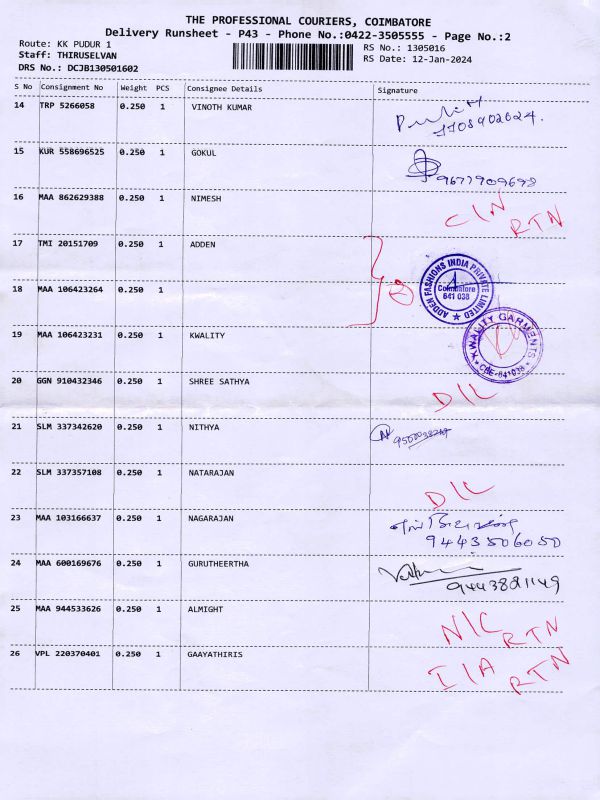 THE PROFESSIONAL COURIERS, COIMBATORE
Delivery Runsheet - P43 - Phone No.:0422-3505555 - Page No.:2
Route: KK PUDUR 1
RS No.: 1305016
Staff: THIRUSELVAN
RS Date: 12-Jan-2024
DRS No.: DCJB130501602
S No Consignment No Weight PCS Consignee Details Signature
14 TRP 5266058 0.250 1 VINOTH KUMAR
15 KUR 558696525 0.250 1 GOKUL
9677909698
16 MAA 862629388 0.250 1 NIMESH
C/N RTN
17 TMI 20151709 0.250 1 ADDEN
ADDEN FASHIONS INDIA PRIVATE LIMITED
Coimbatore
641 038
18 MAA 106423264 0.250 1
19 MAA 106423231 0.250 1 KWALITY
KWALITY GARMENTS
CBE-641038
20 GGN 910432346 0.250 1 SHREE SATHYA
D/L
21 SLM 337342620 0.250 1 NITHYA
22 SLM 337357108 0.250 1 NATARAJAN
D/L
23 MAA 103166637 0.250 1 NAGARAJAN
9443506050
24 MAA 600169676 0.250 1 GURUTHEERTHA
9443821149
25 MAA 944533626 0.250 1 ALMIGHT
N/C RTN
26 VPL 220370401 0.250 1 GAAYATHIRIS
I/A RTN